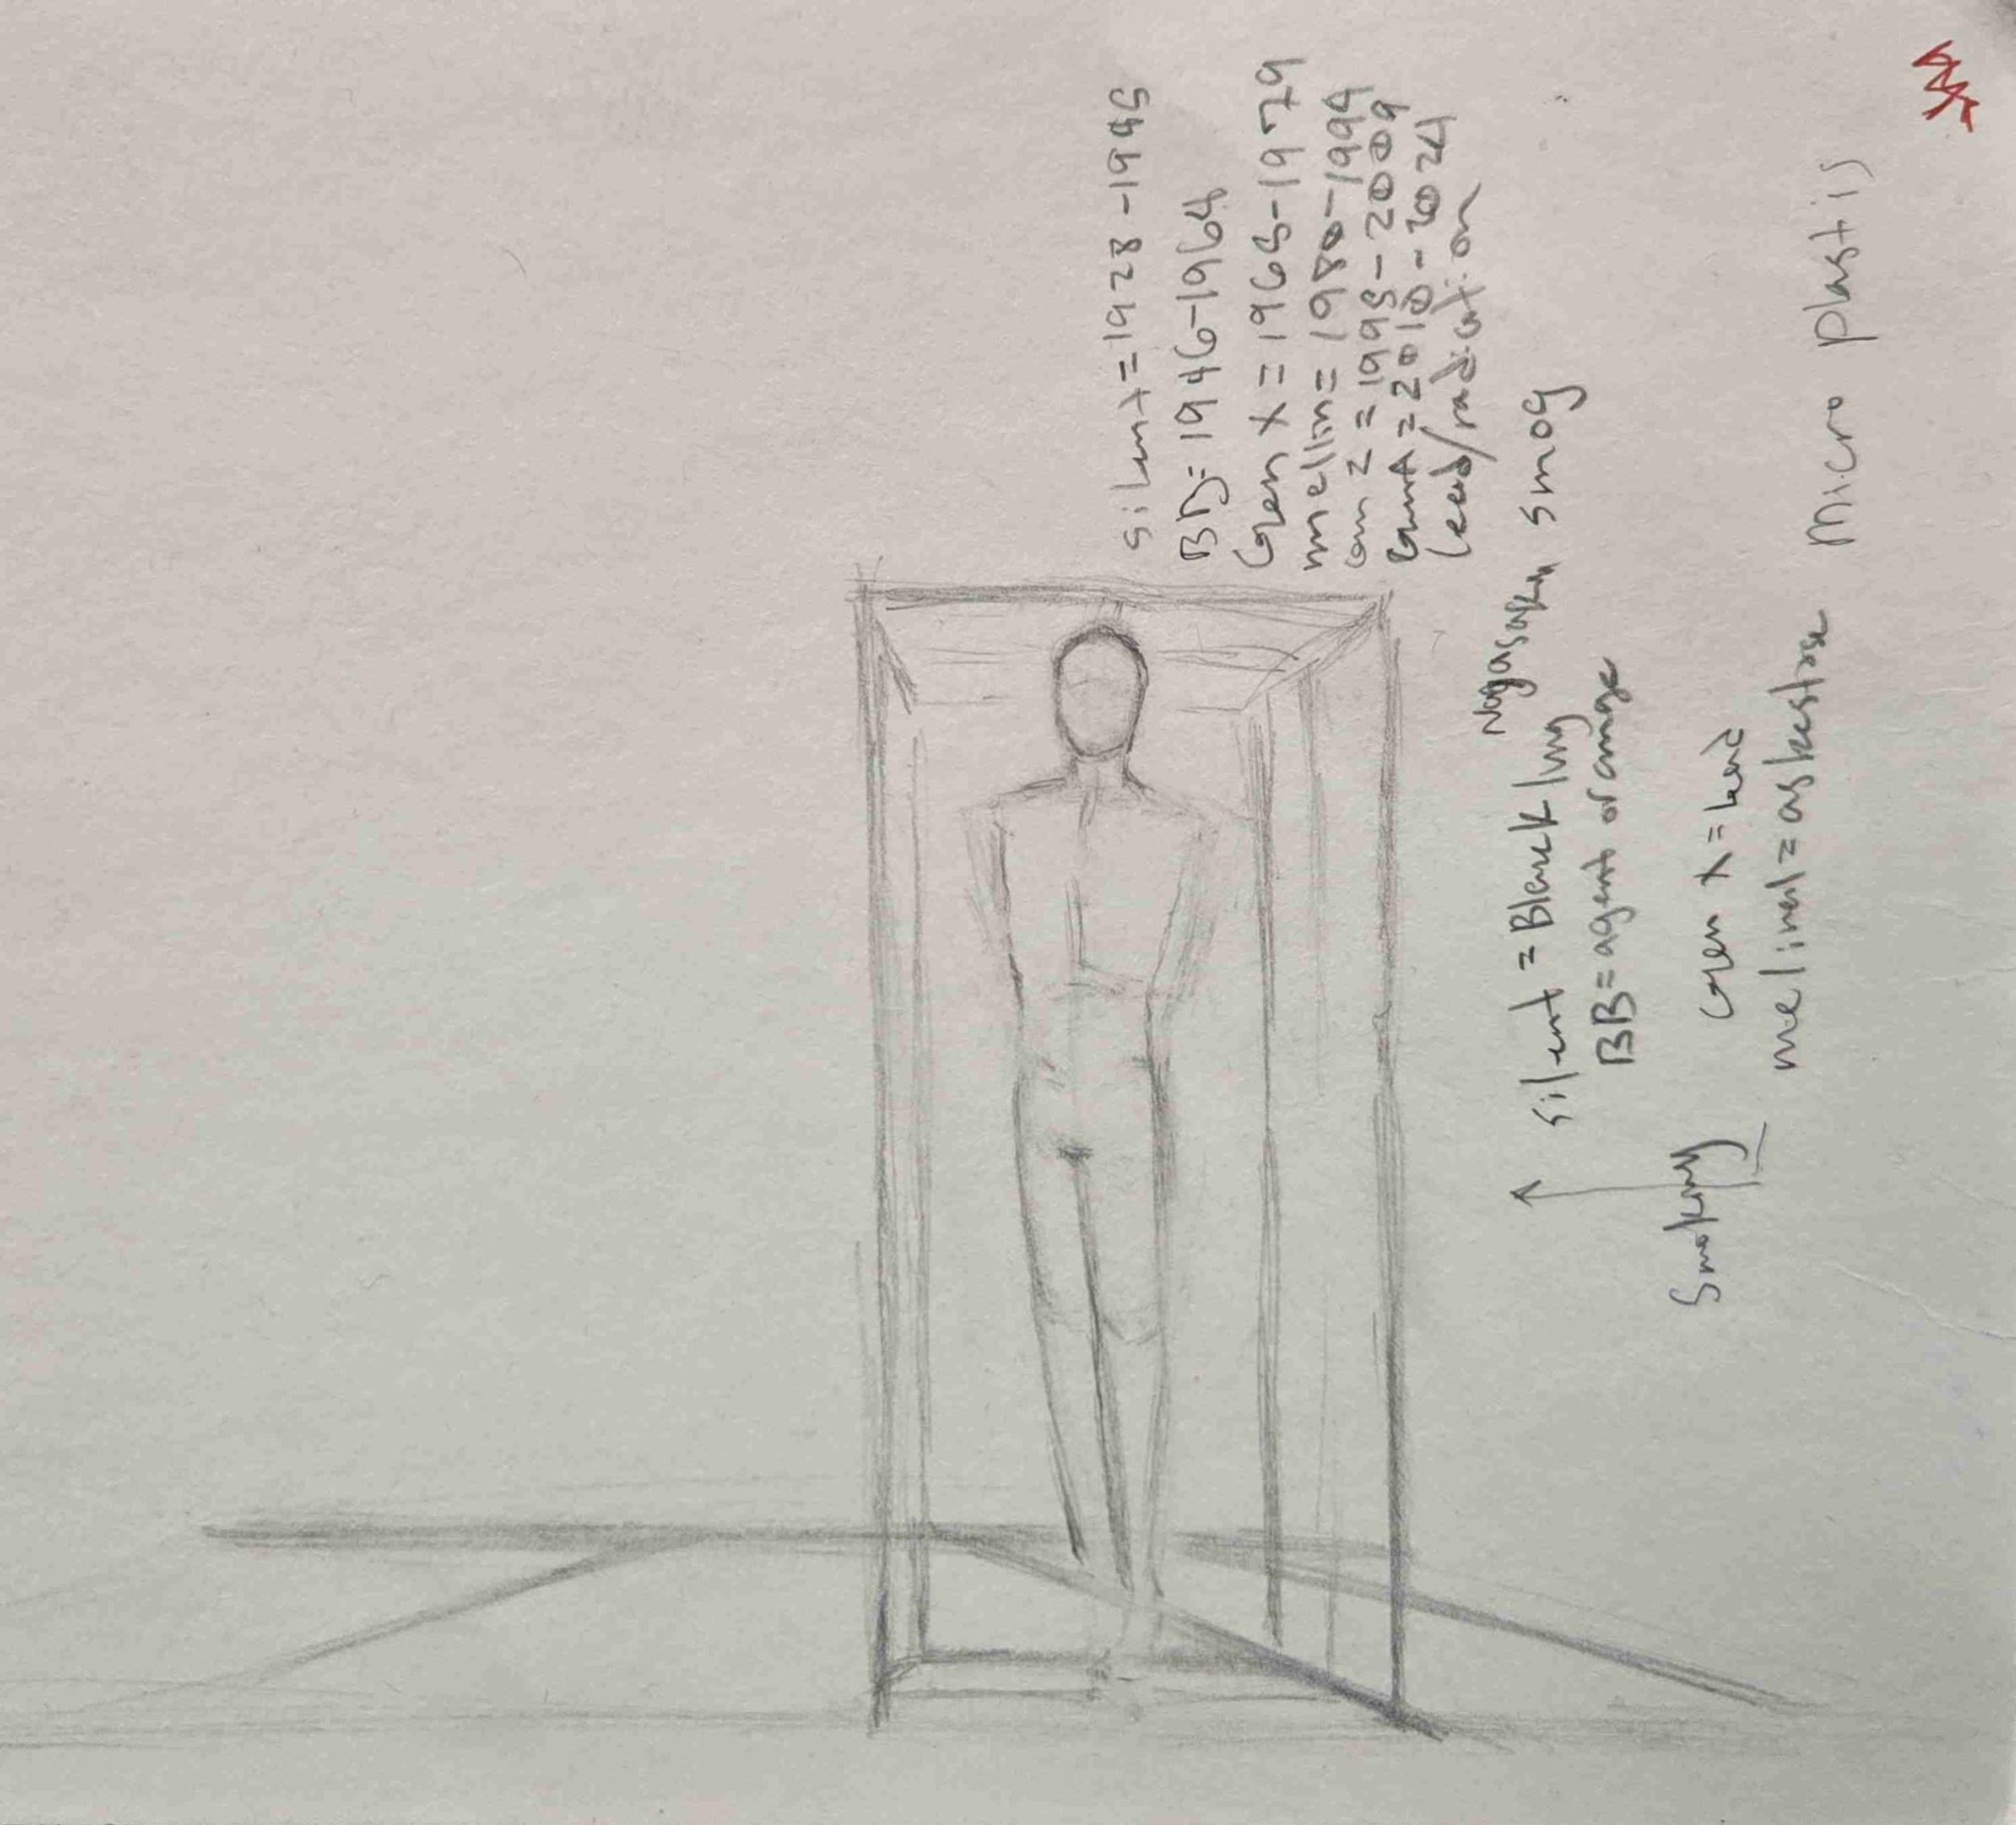 silent=1928-1945
BB=1946-1964
Gen X=1965-1979
mellin=1980-1994
Gen Z=1995-2009
Gen A=2010-2024
lead/radiation
Nagasaki smog
silent=Black lung
BB=agent orange
Smoking
Gen X=lead
melinal=asbestose
micro plastis